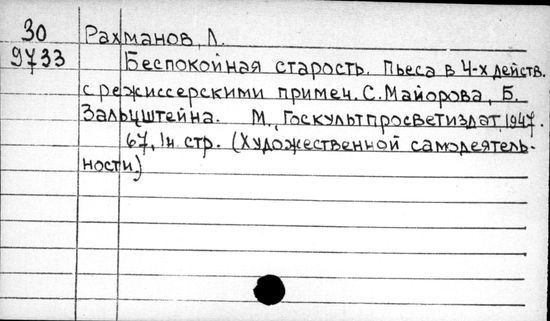 30 Рахманов, Л.
9733 Беспокойная старость. Пьеса в 4-х действ.
с режиссерскими примеч. С. Майорова, Б.
Зальцштейна. М., Госкультпросветиздат, 1947.
67, 1н. стр. (Художественной самодеятель-
ности.)